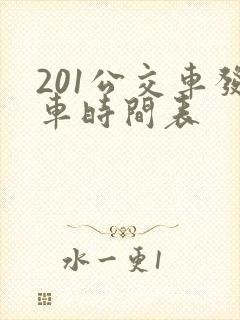 201公交車發
車時間表
水一更1